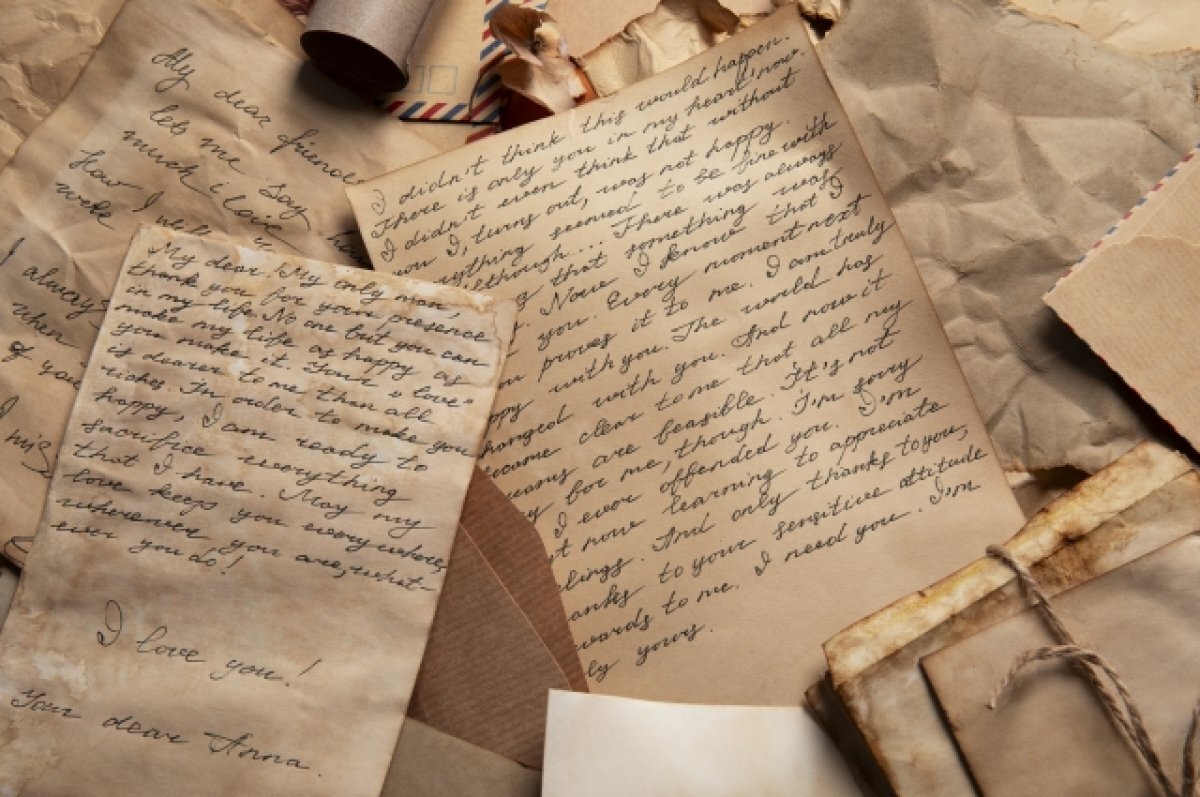 My dear friend
let me say
much i love
How I
week
I always
when
of you
I mis
My dear My only man,
thank you for your presence
in my life. No one but you can
make my life as happy as
you make it. Your "love"
is dearer to me than all
riches. In order to make you
happy, I am ready to
sacrifice everything
that I have. May my
love keeps you everywhere,
wherever you are, what-
ever you do!
I love you!
Your dear Anna.
I didn't think this would happen.
There is only you in my heart now.
I didn't even think that without
you I, turns out, was not happy.
rything seemed to be fine with
lthough... There was always
g that something was
. Now I know that I
you. Every moment next
ou proves it to me. I am truly
ppy with you. The world has
hanged with you. And now it
ecame clear to me that all my
reams are feasible. It's not
y for me, though. I'm sorry
I ever offended you. I'm
t now learning to appreciate
lings. And only thanks to you,
anks to your sensitive attitude
wards to me. I need you. I'm
ly yours.